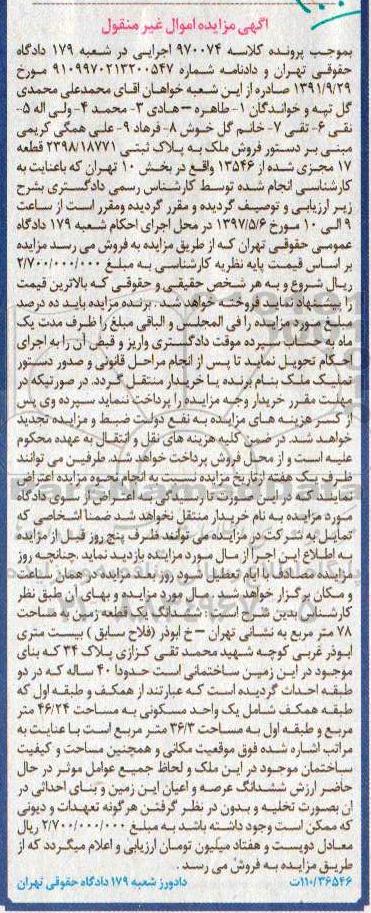 آگهی مزایده اموال غیر منقول
بموجب پرونده کلاسه ۹۷۰۰۷۴ اجرایی در شعبه ۱۷۹ دادگاه
حقوقی تهران و دادنامه شماره ۹۱۰۹۹۷۰۲۱۳۲۰۰۵۴۷ مورخ
۱۳۹۱/۹/۲۹ صادره از این شعبه خواهان آقای محمدعلی محمدی
گل تپه و خواندگان ۱- طاهره – هادی ۳- محمد ۴- ولی اله ۵-
نقی ۶- تقی ۷- خانم گل خوش ۸- فرهاد ۹- علی همگی کریمی
مبنی بر دستور فروش ملک به پلاک ثبتی ۲۳۹۸/۱۸۷۷۱ قطعه
۱۷ مجزی شده از ۱۳۵۴۶ واقع در بخش ۱۰ تهران که باعنایت به
کارشناسی انجام شده توسط کارشناس رسمی دادگستری بشرح
زیر ارزیابی و توصیف گردیده و مقرر گردیده ومقرر است از ساعت
۹ الی ۱۰ مورخ ۱۳۹۷/۵/۶ در محل اجرای احکام شعبه ۱۷۹ دادگاه
عمومی حقوقی تهران که از طریق مزایده به فروش می رسد مزایده
بر اساس قیمت پایه نظریه کارشناسی به مبلغ ۲/۷۰۰/۰۰۰/۰۰۰
ریال شروع و به هر شخص حقیقی و حقوقی که بالاترین قیمت
را پیشنهاد نماید فروخته خواهد شد. برنده مزایده باید ده درصد
مبلغ مورد مزایده را فی المجلس و الباقی مبلغ را ظرف مدت یک
ماه به حساب سپرده موقت دادگستری واریز و قبض آن را به اجرای
احکام تحویل نمایند تا پس از انجام مراحل قانونی و صدور دستور
تملیک ملک بنام برنده یا خریدار منتقل گردد. در صورتیکه در
مهلت مقرر خریدار وجه مزایده را پرداخت ننماید سپرده وی پس
از کسر هزینه های مزایده به نفع دولت ضبط و مزایده تجدید
خواهد شد. در ضمن کلیه هزینه های نقل و انتقال به عهده محکوم
علیه است و از محل فروش پرداخت خواهد شد. طرفین می توانند
ظرف یک هفته ازتاریخ مزایده نسبت به انجام نحوه مزایده اعتراض
نمایند که در این صورت تا رسیدگی به اعتراض از سوی دادگاه
مورد مزایده به نام خریدار منتقل نخواهد شد ضمناً اشخاصی که
تمایل به شرکت در مزایده می توانند ظرف پنج روز قبل از مزایده
به اطلاع این اجرا از مال مورد مزایده بازدید نماید. چنانچه روز
مزایده مصادف با ایام تعطیل شود روز بعد مزایده در همان ساعت
و مکان برگزار خواهد شد. مال مورد مزایده و بهای آن طبق نظر
کارشناس بدین شرح است: ششدانگ یک قطعه زمین به مساحت
۷۸ متر مربع به نشانی تهران – خ ابوذر (فلاح سابق) بیست متری
ابوذر غربی کوچه شهید محمد تقی کزازی پلاک ۳۴ که بنای
موجود در این زمین ساختمانی است حدودا ۴۰ ساله که در دو
طبقه احداث گردیده است که عبارتند از همکف و طبقه اول که
طبقه همکف شامل یک واحد مسکونی به مساحت ۴۶/۲۴ متر
مربع و طبقه اول به مساحت ۳۶/۳ متر مربع است با عنایت به
مراتب اشاره شده فوق موقعیت مکانی و همچنین مساحت و کیفیت
ساختمان موجود در این ملک و لحاظ جمیع عوامل موثر در حال
حاضر ارزش ششدانگ عرصه و اعیان این زمین و بنای احداثی در
آن بصورت تخلیه و بدون در نظر گرفتن هرگونه تعهدات و دیونی
که ممکن است وجود داشته باشد به مبلغ ۲/۷۰۰/۰۰۰/۰۰۰ ریال
معادل دویست و هفتاد میلیون تومان ارزیابی و اعلام میگردد که از
طریق مزایده به فروش می رسد.
۱۱۰/۳۶۵۴۶ت دادورز شعبه ۱۷۹ دادگاه حقوقی تهران